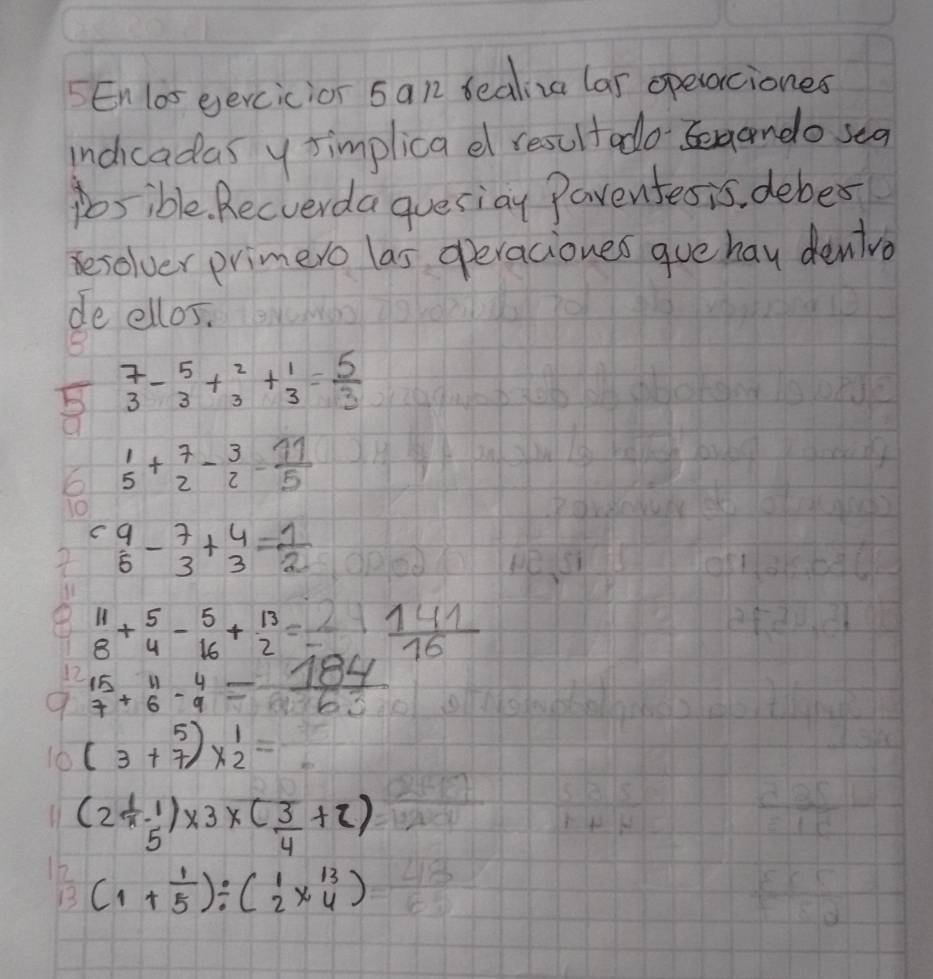 5 En los ejercicios 5 a 12 realiza las operaciones
indicadas y simplica el resultado. cuando sea
posible. Recuerda que si ay Parentesis. debes
resolver primero las operaciones que hay dentro
de ellos.
5 7/3 - 5/3 + 2/3 + 1/3 = 5/3
6 1/5 + 7/2 - 3/2 = 11/5
7 9/6 - 7/3 + 4/3 = 1/2
8 11/8 + 5/4 - 5/16 + 13/2 = 141/16
9 15/7 + 11/6 - 4/9 = 184/63
10 (3 + 5/7) x 1/2 =
11 (2 - 1/5) x 3 x (3/4 + 2) =
12 (1 + 1/5) ÷ (1/2 x 13/4) =